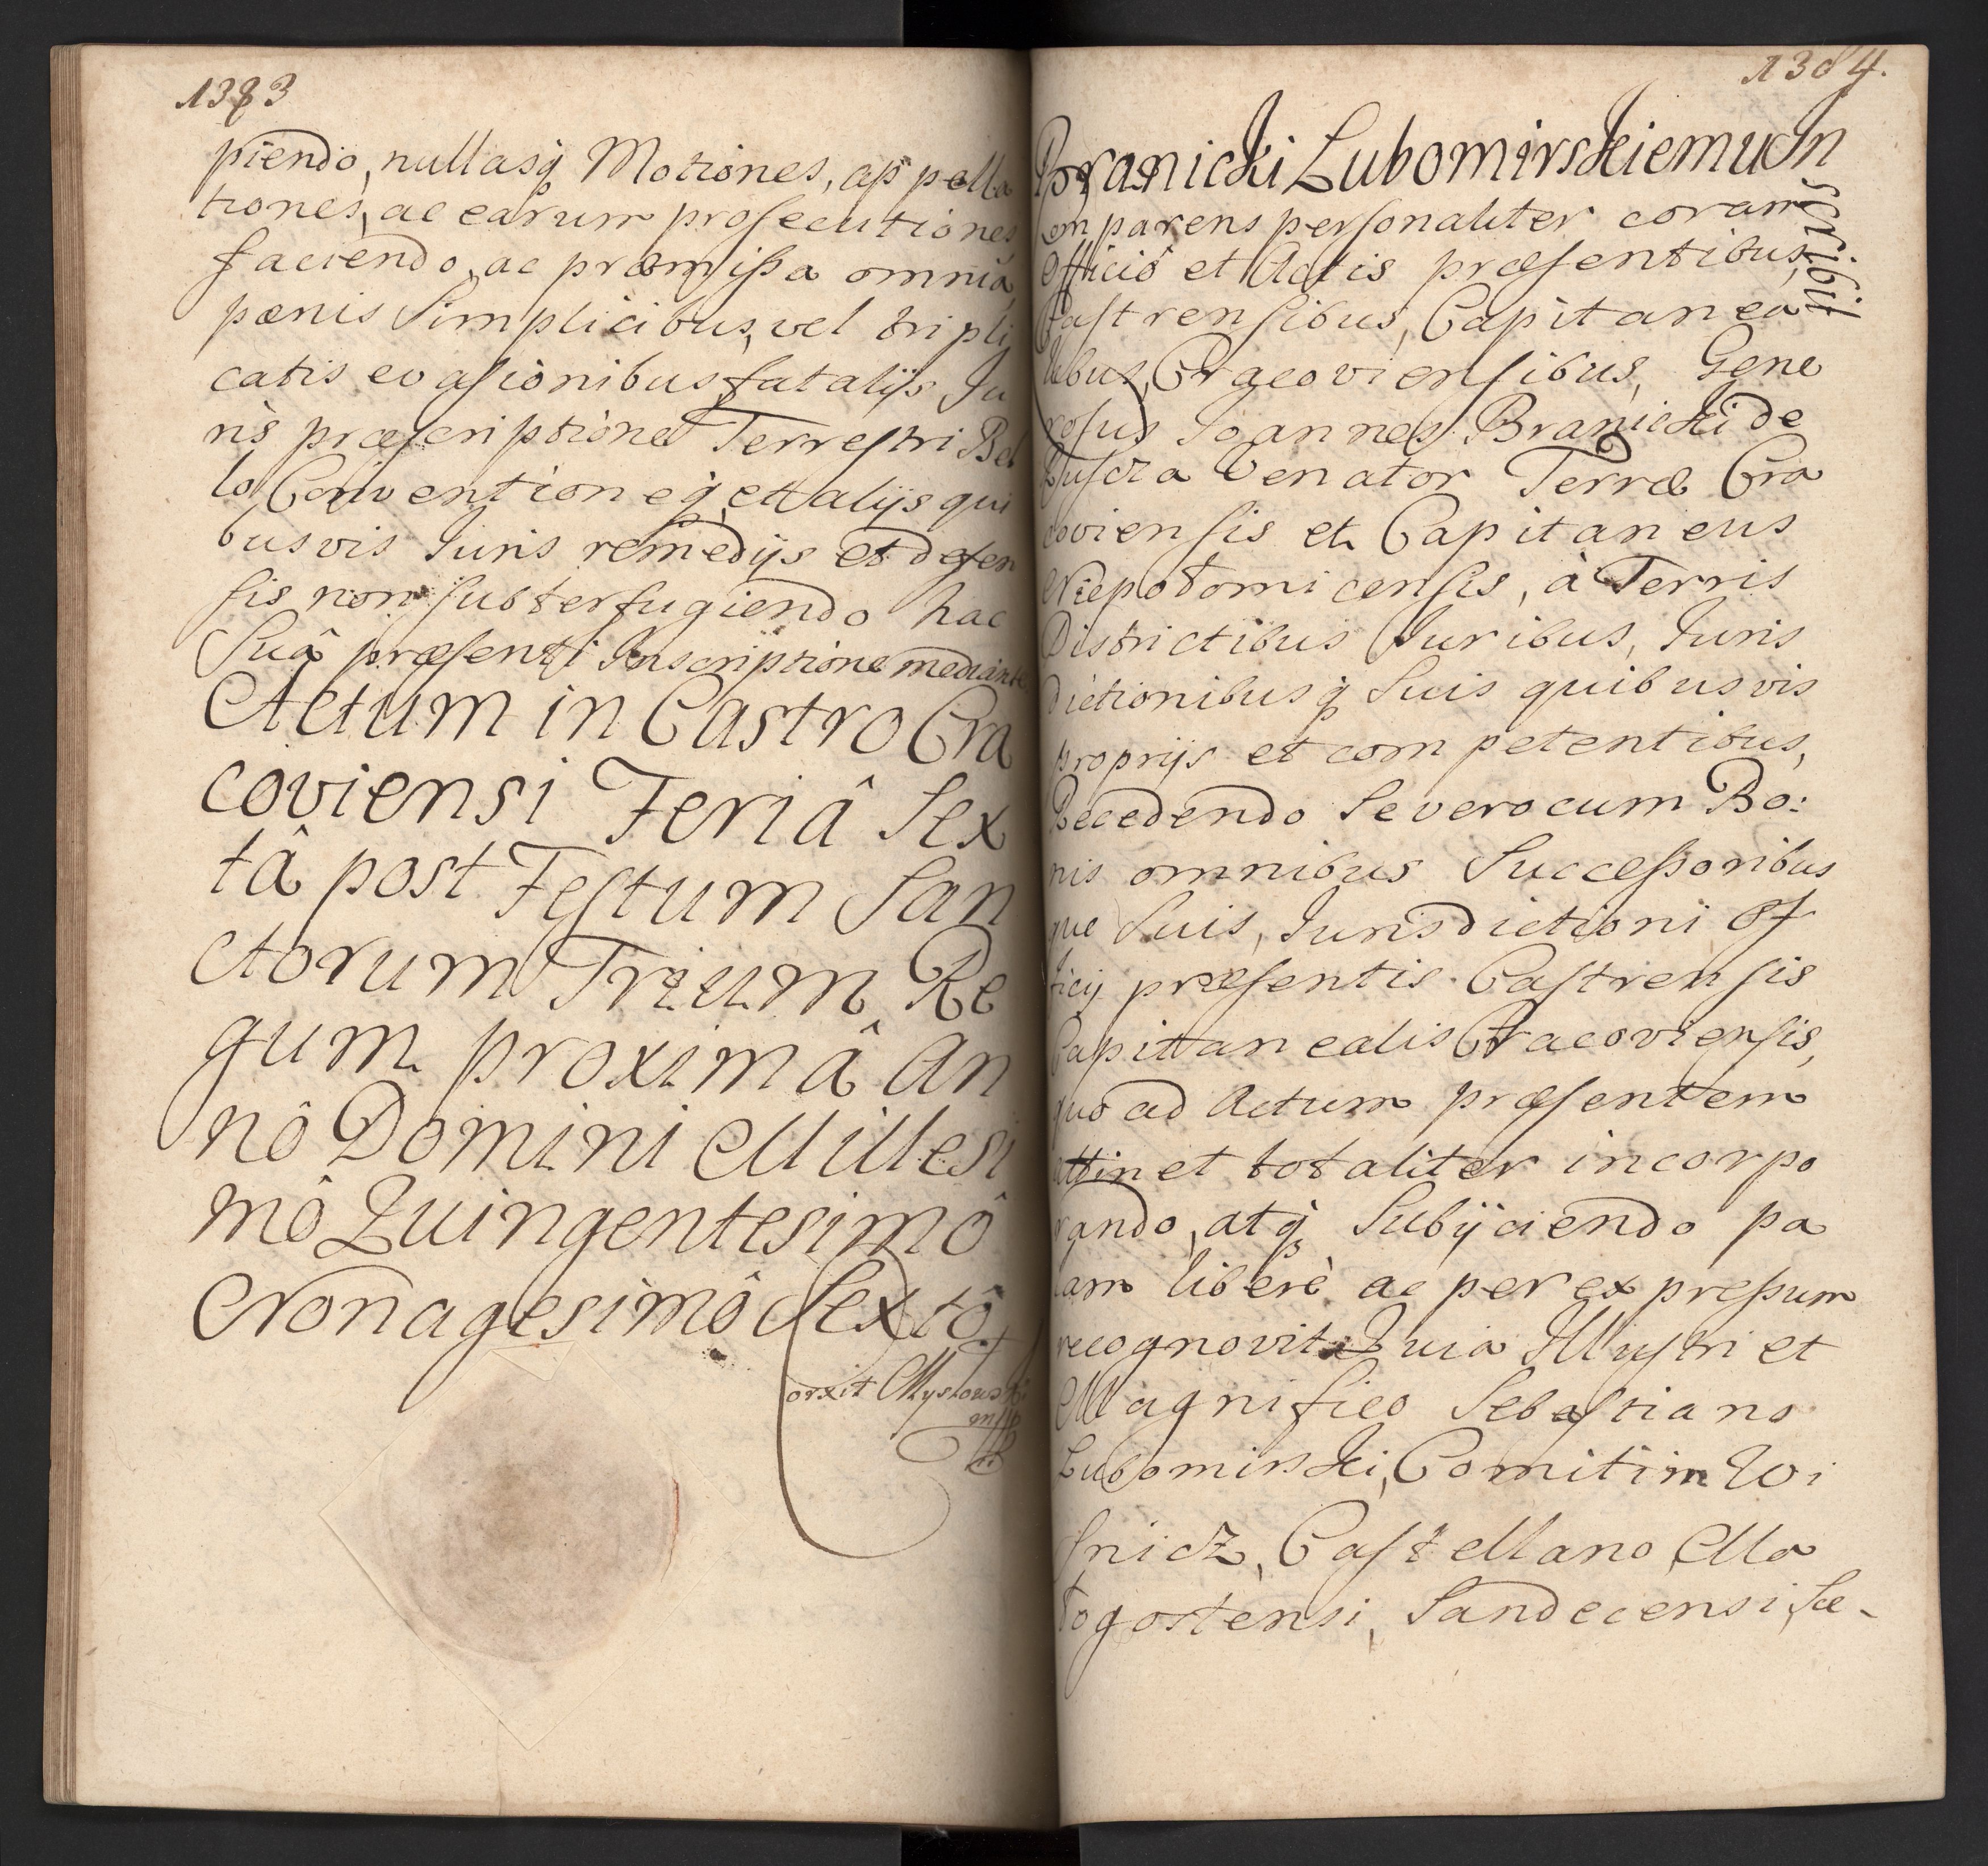 1383
piendo, nullasq Motiones, appella
tiones, ac earum prosecutiones
faciendo, ac præmissa omnia,
pænis Simplicibus, vel tripli
catis evasionibus fatalijs Ju
ris præscriptione Terrestri Bel
lo Conventioneq, et alijs qui
busvis Juris remedijs et defen
sis non subterfugiendo hac
Suâ præsenti Inscriptione mediante.
Actum in Castro Cra
coviensi Feriâ Sex
tâ post Festum San
ctorum Trium Re
gum proximâ An
nô Domini Millesi
mô Quingentesimô
Nonagesimô Sextô
1384.
Branicki Lubomirskiemu In
Comparens personaliter coram
Officio et Actis præsentibus,
Castrensibus, Capitanea
libus, Cracoviensibus, Gene
rosus Joannes Branicki de
Ruscza Venator Terræ Cra
coviensis et Capitaneus
Niepolomicensis, à Terris
Districtibus Juribus, Juris
dictionibusq Suis quibusvis
proprijs et competentibus,
Recedendo Se vero cum Bo:
nis omnibus Successoribus
que Suis, Jurisdictioni Of
ficij præsentis Castrensis
Capitanealis Cracoviensis,
quo ad Actum præsentem
attinet totaliter incorpo
rando, atq Subijciendo pa
lam liberè ac per expressum
recognovit Quia Illustri et
Magnifico Sebastiano
Lubomirski, Comiti in Wi
snicz, Castellano Ma
logostensi, Sandecensi, Sce-